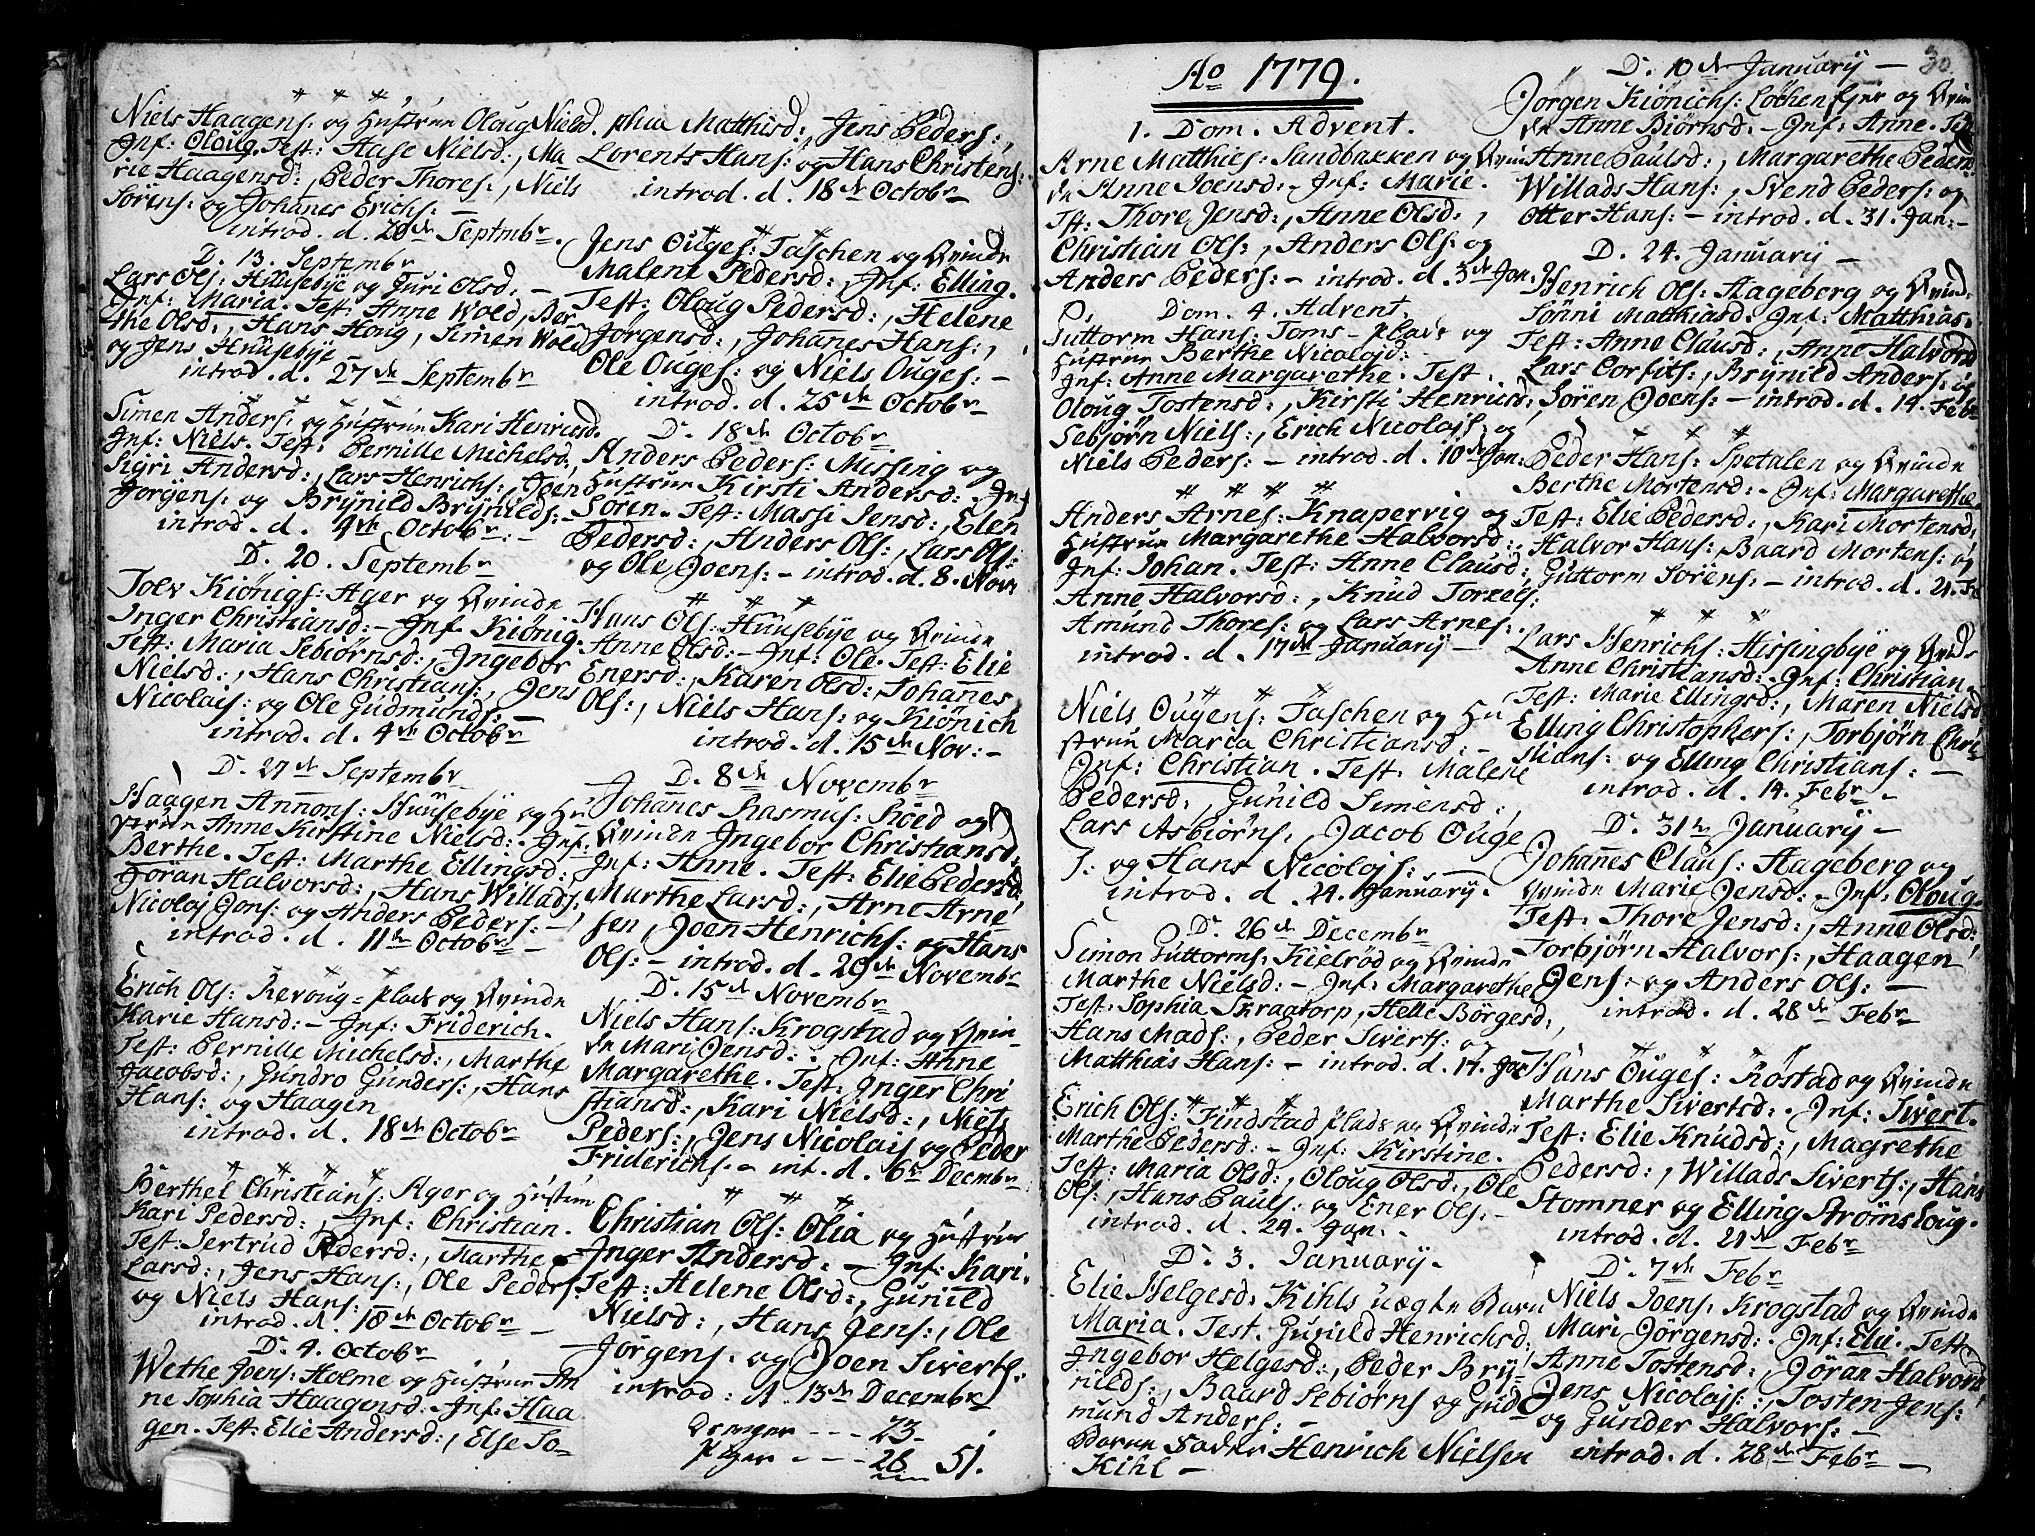 Niels Haagens: og Hustrue Oloug Nielsd.
Inf: Oloug. Test: Aase Nielsd:, Ma
rie Haagensd:, Peder Thores:, Niels
Sörens: og Johanes Erichs: —
introd. d. 20de Septmbr.
D. 13. Septembr
Lars Ols: Huusebye og Juri Olsd: —
Inf: Maria. Test: Anne Wold, Ber
the Olsd:, Hans Houg, Simen Wold
og Jens Huusebye —
introd. d. 27de Septembr
Simen Anders: og Hustrue Kari Henricsd.
Inf: Niels. Test: Pernille Michelsd,
Sigri Andersd:, Lars Henrichs:, Joen
Jorgens: og Brynild Brynilds: —
introd. d. 4de Octobr. —
D. 20. Septembr
Tolv Kiönigs: Ager og Qvinde
Inger Christiansd: — Inf. Kiönig.
Test: Maria Sebiörnsd:, Ingebor
Nielsd:, Hans Christians:, Jens
Nicolais: og Ole Gudmunds: —
introd. d. 4de Octobr
D. 27de Septembr
Haagen Annons: Huusebye og Hu
strue Anne Kirstine Nielsd: Inf:
Berthe. Test: Marthe Ellingsd:
Jöran Halvorsd:, Hans Willads,
Nicolaj Jons: og Anders Peders: —
introd. d. 11te Octobr —
Erich Ols: Revoug-plads og Qvinde
Karie Hansd: — Inf: Friderich.
Test: Pernille Michelsd:, Marthe
Jacobsd:, Gundro Gunders:, Hans
Hans: og Haagen
introd. d. 18de Octobr
Berthel Christians: Ager og Hustrue
Kari Pedersd:, Inf: Christian.
Test: Gertrud Pedersd:, Marthe
Larsd:, Jens Hans:, Ole Peders:
og Niels Hans:
introd. d. 18de Octobr —
D. 4. Octobr —
Wethe Joens: Holme og Hustrue An
ne Sophia Haagensd: Inf: Haa
gen. Test: Elie Andersd:, Else So-
phia Matthisd:, Jens Peders:,
Lorents Hans: og Hans Christens:
introd. d. 18de Octobr —
Jens Ouges: Taschen og Qvinde
Malene Pedersd:, Inf: Elling.
Test: Oloug Pedersd:, Helene
Jörgensd:, Johanes Hans:,
Ole Ouges: og Niels Ouges: —
introd. d. 25de Octobr —
D. 18de Octobr
Anders Peders: Missing og
Hustrue Kirsti Andersd: Inf
Sören. Test: Massi Jensd:, Elen
Pedersd:, Anders Ols:, Lars Ols:
og Ole Joens: — introd. d. 8. Novr
Hans Ols: Huusebye og Qvinde
Anne Olsd: — Inf: Ole. Test: Elie
Enersd:, Karen Olsd:, Johanes
Ols:, Niels Hans: og Kiönich
introd. d. 15de Nov: —
D. 8de Novembr
Johanes Rasmus: Röed og
Qvinde Ingebor Christiansd:
Inf: Anne. Test: Elie Pedersd
Marthe Larsd:, Arne Arne
sen, Joen Henrichs: og Hans
Ols: — introd. d. 29de Novembr
D. 15de Novembr
Niels Hans: Krogstad og Qvin-
de Mari Jensd: Inf: Anne
Margarethe. Test: Inger Chri
stiansd:, Kari Nielsd:, Niels
Peders:, Jens Nicolais og Peder
Friderichs. — int. d. 6te Decembr.
Christian Ols: Ölia og Hustrue
Inger Andersd: — Inf: Kari.
Test: Helene Olsd:, Gunild
Nielsd:, Hans Jens:, Ole
Jörgens. og Joen Siverts.
introd: d. 13de Decembr
Drenger - - - 23.
Piger - - - 28 51.
Ao 1779.
1. Dom. Advent.
Arne Matthies: Sandbakken og Qvin
de Anne Joensd: Inf: Marie.
Tst: Thore Jensd:, Anne Olsd:,
Christian Ols:, Anders Ols: og
Anders Peders: — introd. d. 3de Jan.
Dom. 4. Advent.
Guttorm Hans: Toms-plads og
Hustrue Berthe Nicolojd: —
Inf: Anne Margarethe. Test
Oloug Tostensd:, Kirsti Henricsd:,
Sebjörn Niels:, Erich Nicolajs og
Niels Peders: — introd. d. 10de Jan:
Anders Arnes: Knapervig og
Hustrue Margarethe Halvorsd:
Inf: Johan. Test: Anne Clausd:,
Anne Halvorsd:, Knud Torkels:
Amund Thores: og Lars Arnes:
introd. d. 17de Januarij —
Niels Ougens: Taschen og Hu
strue Maria Christiansd: —
Inf: Christian. Test. Malene
Pedersd:, Gunild Simensd:,
Lars Asbiörns, Jacob Ouge
s: og Hans Nicolojs: —
introd. d. 24. Januarij.
D. 26de Decembr
Simon Guttorms: Kielröd og Qvinde
Marthe Nielsd: — Inf: Margarethe
Test: Sophia Skragtorp, Helle Börgesd:,
Hans Mads:, Peder Siverts: og
Matthias Hans: — introd. d. 17. Jan
Erich Ols: Findstad plads og Qvinde
Marthe Pedersd: — Inf: Kirstine.
Test: Maria Olsd:, Oloug Olsd:, Ole
Ols:, Hans Pauls: og Ener Ols: —
introd. d. 24. Jan. —
D. 3. Januarij.
Elie Helgesd: Kihls uægte Barn
Maria. Test. Gunild Henrichsd:
Ingebor Helgesd:, Peder Bry-
nilds:, Baard Sebiörns og Gud
mund Anders: —
Barne Fader Henrich Nielsen
Kihl —
30
D. 10de Januarij —
Jörgen Kiönichs: Lochen Eger og Qvin
de Anne Biörnsd: — Inf: Anne. Test
Anne Paulsd:, Margarethe Peden
Willads Hans:, Svend Peders: og
Otter Hans: — introd. d. 31. Jan: —
D. 24. Januarij —
Henrich Ols: Hageberg og Qvind.
Sönni Matthiasd: Inf: Matthias.
Test: Anne Clausd:, Anne Halvorsd
Lars Corfits:, Brynild Anders: og
Sören Joens: — introd. d. 14. Febr
Peder Hans: Spetalen og Qvinde
Berthe Mortensd: — Inf: Margarethe
Test: Elie Pedersd:, Kari Mortensd:,
Halvor Hans:, Baard Mortens: og
Guttorm Sörens: — introd. d. 21. Fe
Lars Henrichs: Hissingbye og Qvinde
Anne Christiansd: Inf: Christian.
Test: Marie Ellingsd:, Maren Nielsd
Elling Christophers:, Torbjörn Chri-
stians: og Elling Christians: —
introd. d. 14. Febr —
D. 31te Januarij —
Johanes Claus: Hageberg og
Qvinde Marie Jensd: Inf: Oloug.
Test: Thore Jensd:, Anne Olsd:,
Torbjörn Halvors:, Haagen
Jens: og Anders Ols: —
introd. d. 28de Febr
Hans Ouges: Röstad og Qvinde
Marthe Sivertsd: Inf: Sivert.
Test: Elie Knudsd:, Magrethe
Pedersd:, Willads Siverts:, Hans
Stomner og Elling Strömsloug.
introd. d. 21de Febr
D. 7de Febr
Niels Joens: Krogstad og Qvinde
Mari Jörgensd: Inf: Elie. Test:
Anne Tostensd:, Jöran Halvorsd,
Jens Nicolajs:, Tosten Jens:
og Gunder Halvors: —
introd. d. 28de Febr —